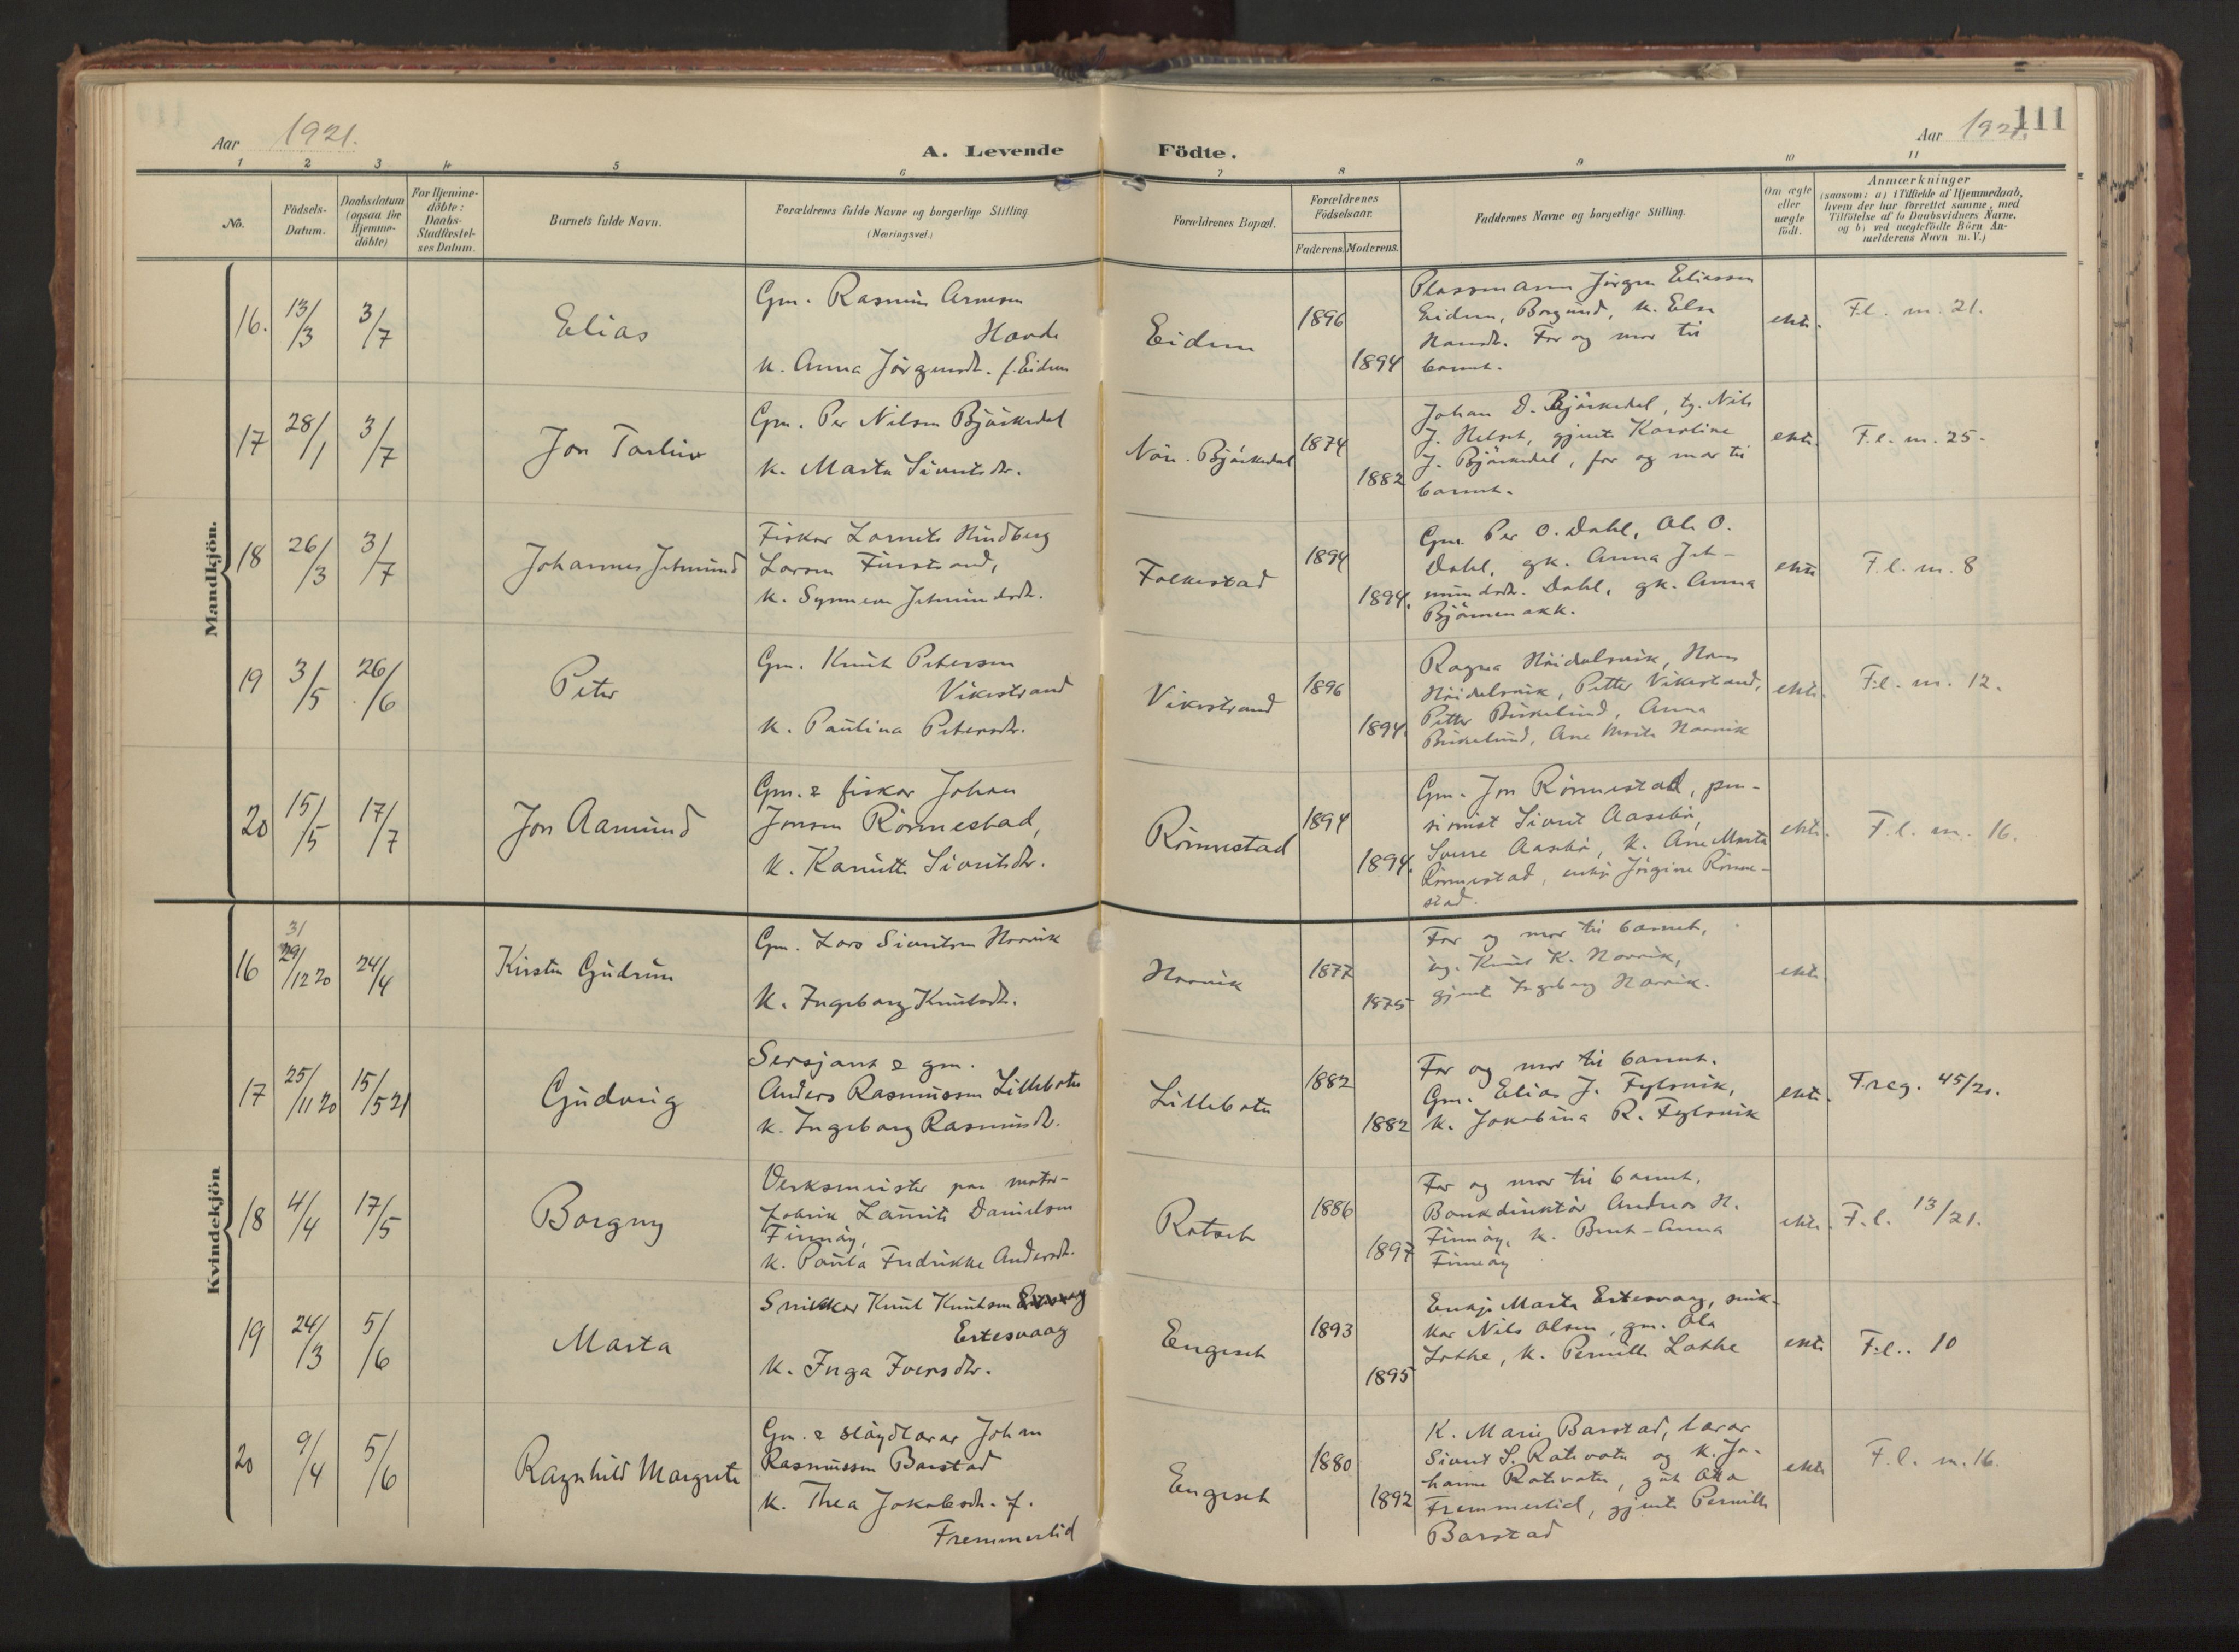 Aar 1921.
A. Levende Födte.
Aar 1921.
111
1 2 3 4 5 6 7 8 9 10 11
No.
Födsels-
Datum.
Daabsdatum
(ogsaa for
Hjemme-
döbte)
For Hjemme-
döbte:
Daabs-
Stadfæstel-
ses Datum.
Barnets fulde Navn.
Forældrenes fulde Navne og borgerlige Stilling.
(Næringsvei.)
Forældrenes Bopæl.
Forældrenes
Födselsaar.
Faderens. Moderens.
Faddernes Navne og borgerlige Stilling.
Om ægte
eller
uægte
födt.
Anmærkninger
(saasom: a) i Tilfælde af Hjemmedaab,
hvem der har forrettet samme, med
Tilföielse af to Daabsvidners Navne.
og b) ved uægtefödte Börn An-
melderens Navn m. V.)
Mandkjön.
16. 13/3 3/7
Elias
Gm. Rasmus Arneson
Havde
k. Anna Jörgensdt. f. Eidem
Eidem
1896
1894
Plassmann Jörgen Eliassen
Eidem, Borgund, k. Else
Hansdt. Far og mor til
barnet.
ekte.
F.l. m. 21.
17 28/1 3/7
Jon Torleiv
Gm. Per Nilsen Björkedal
k. Marta Sivertsdt.
Nör. Björkedal
1874
1882
Johan D. Björkedal, ug. Nils
J. Helset, gjente Karoline
J. Björkedal, far og mor til
barnet.
ekte.
F.l. m. 25.
18 26/3 3/7
Johannes Jetmund
Fisker Laurits Hindberg
Larsen Furstrand,
k. Synneva Jetmundsdt.
Folkestad
1894
1894.
Gm. Per O. Dahl, Ole O.
Dahl, gk. Anna Jet-
mundsdt. Dahl, gk. Anna
Björnenakk.
ekte
F.l. m. 8
19 3/5 26/6
Peter
Gm. Knut Peterson
Vikestrand
k. Paulina Petersdt.
Vikestrand
1896
1894.
Ragna Höidalsvik, Hans
Höidalsvik, Petter Vikestrand,
Petter Birkelund, Anna
Birkelund, Ane Marte Norvik
ekte.
F.l. m. 12.
20 15/5 17/7
Jon Aamund
Gm. & fisker Johan
Jonsen Rönnestad,
k. Kanutte Sivertsdt.
Rönnestad
1894
1894.
Gm. Jon Rönnestad, pen-
sionist Sivert Aasebö,
Sverre Aasebö, k. Ane Marta
Rönnestad, enkje Jörgine Rönne-
stad.
ekte.
F.l. m. 16.
Kvindekjön
16 31 29/12 20 24/4
Kirsten Gudrun
Gm. Lars Sivertsen Norvik
k. Ingeborg Knutsdt.
Norvik
1877
1875
Far og mor til barnet,
ug. Knut K. Norvik,
gjente Ingeborg Norvik.
ekte.
17 25/11 20 15/5 21
Gudveig
Sersjant & gm.
Anders Rasmussen Lillebotn
k. Ingeborg Rasmusdt.
Lillebotn
1882
1882
Far og mor til barnet.
Gm. Elias J. Fylsvik,
k. Jakobina R. Fylsvik
ekte.
F.reg. 45/20.
18 4/4 17/5
Borgny
Verksmeister paa motor-
fabrik Laurits Danielsen
Finnöy,
k. Paula Fredrikke Andersdt.
Rotset
1886
1897
Far og mor til barnet.
Bankdirektör Andreas H.
Finnöy, k. Berit-Anna
Finnöy
ekte.
F.l. 13/21.
19 24/3 5/6
Marta
Snikker Knut Knutsen
Eitesvaag
k. Inga Iversdt.
Engeset
1893
1895
Enkje Marta Eitesvaag, snik-
kar Nils Olsen, gm. Ola
Lothe, k. Pernille Lothe
ekte
F.l.. 10
20 9/4 5/6
Ragnhild Margrete
Gm. & slöydlærar Johan
Rasmussen Barstad
k. Thea Jakobsdt. f.
Fremmerlid
Engeset
1880
1892
K. Marie Barstad, lærar
Sivert S. Rotevatn og k. Jo-
hanne Rotevatn, gut Ola
Fremmerlid, gjente Pernille
Barstad
ekte
F.l. m. 16.